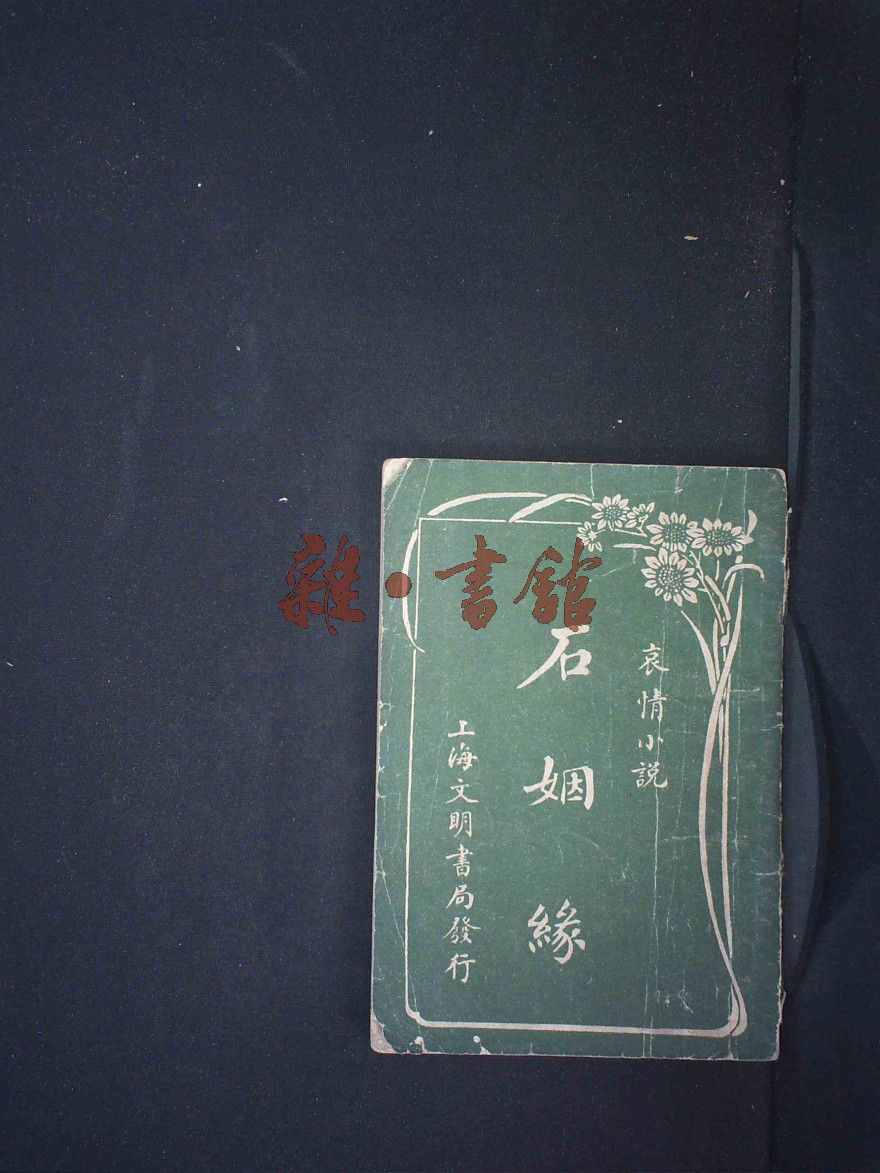 雜·書館
哀情小說
石姻緣
上海文明書局發行